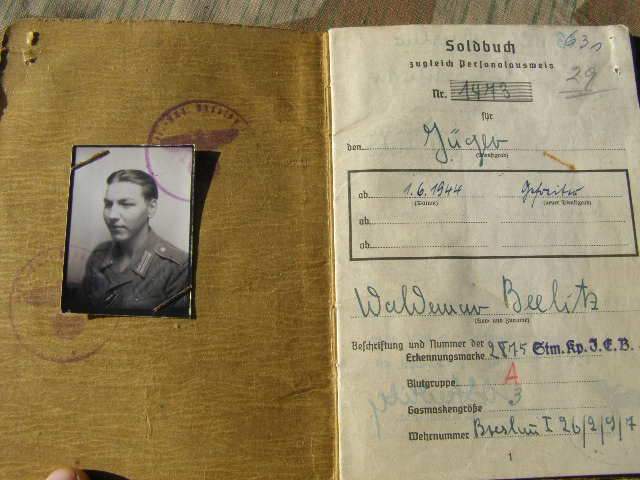 631
Soldbuch
zugleich Personalausweis
29
Nr. 1973
für
den Jäger
(Dienstgrad)
ab 1.6.1944 Gefreiter
(Datum) (neuer Dienstgrad)
ab
ab
Waldemar Beelitz
(Vor- und Zuname)
Beschriftung und Nummer der
Erkennungsmarke 2875 Stm.Kp.I.E.B.
Blutgruppe A
Gasmaskengröße 3
Wehrnummer Breslau I 26/2/9/7
1